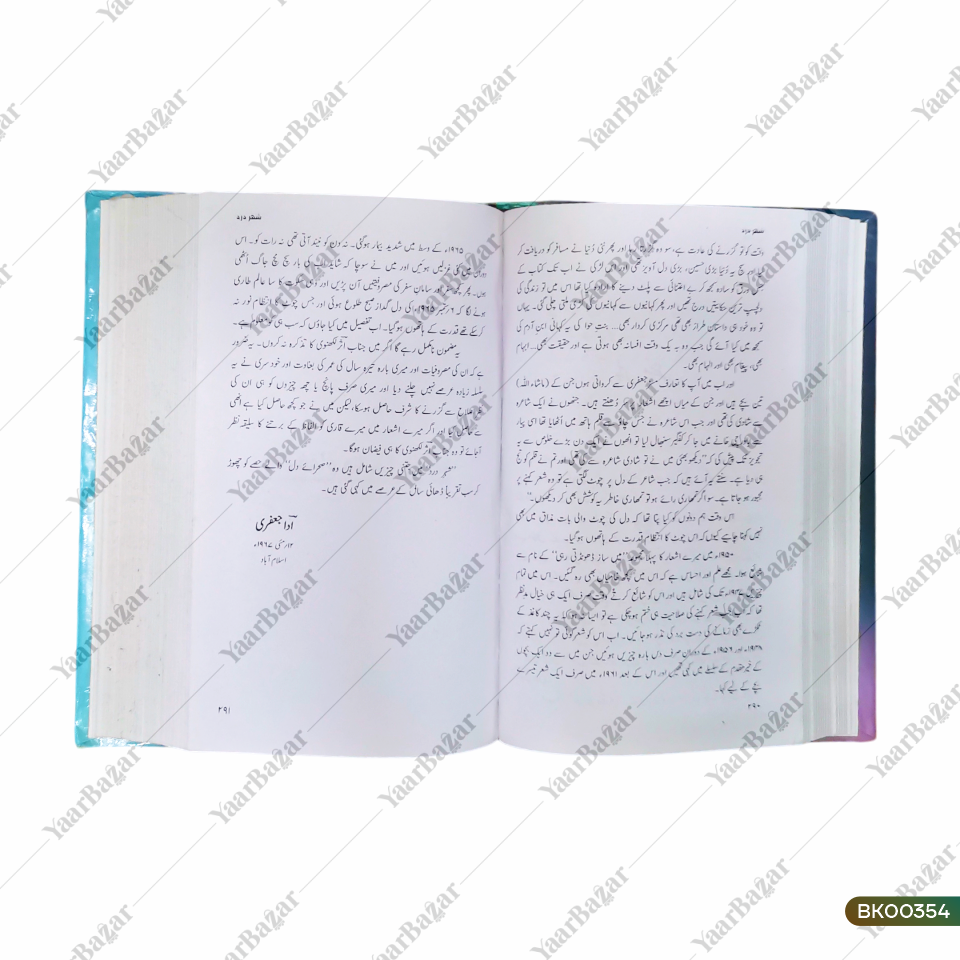 شہر درد
وقت کو تو گزرنے کی عادت ہے، سو وہ گزرتا رہا اور پھر نئی دُنیا نے مسافر کو دریافت کر
لیا۔ سچ یہ دُنیا بڑی حسین، بڑی دل آویز تھی اور اس لڑکی نے اب تک کتاب کے
جس ورق کو سادہ سمجھ کر بے اعتنائی سے پلٹ دینے کا ارادہ کیا تھا اس میں تو زندگی کی
دلچسپ ترین حکایتیں درج تھیں اور پھر کہانیوں سے کہانیوں کی کڑی ملتی چلی گئی۔ یہاں
تو وہ خود ہی داستان طراز بھی تھی مرکزی کردار بھی... بنتِ حوا کی یہ کہانی ابنِ آدم کی
سمجھ میں کیا آئے گی جب وہ بہ یک وقت افسانہ بھی ہوتی ہے اور حقیقت بھی... ابہام
بھی، پیغام بھی اور الہام بھی۔
اور اب میں آپ کا تعارف مسز جعفری سے کرواتی ہوں جن کے (ماشاء اللہ)
تین بچے ہیں اور جن کے میاں اچھے اشعار پر سر دُھنتے ہیں۔ جنھوں نے ایک شاعرہ
سے شادی کی تھی اور جب اس شاعرہ نے جس چاؤ سے قلم ہاتھ میں اُٹھایا تھا اسی پیار
سے باورچی خانے میں جا کر کفگیر سنبھال لیا تو اُنھوں نے ایک دن بڑے خلوص سے یہ
تجویز تک پیش کی کہ ”دیکھو بھئی میں نے تو شادی شاعرہ سے کی تھی اور تم نے قلم کو تج
ہی دیا ہے۔ سنتے یہ آئے ہیں کہ جب شاعر کے دل پر چوٹ لگتی ہے تو وہ شعر کہنے پر
مجبور ہو جاتا ہے۔ سو اگر تمھاری رائے ہو تو تمھاری خاطر یہ کوشش بھی کر دیکھوں۔“
اس وقت ہم دونوں کو کیا پتا تھا کہ دل کی چوٹ والی بات مذاق میں بھی
نہیں کہنا چاہیے کیوں کہ اس چوٹ کا انتظام قدرت کے ہاتھوں ہو گیا۔
۱۹۵۰ء میں میرے اشعار کا پہلا مجموعہ ”میں ساز ڈھونڈتی رہی“ کے نام سے
شائع ہوا۔ مجھے علم اور احساس ہے کہ اس میں کچھ خامیاں بھی رہ گئیں۔ اس میں تمام
چیزیں ۱۹۴۷ء تک کی شامل ہیں اور اس کو شائع کرتے وقت صرف ایک ہی خیال مدنظر
تھا کہ اب جب شعر کہنے کی صلاحیت ہی ختم ہو چکی ہے تو ایسا نہ ہو کہ یہ چند کاغذ کے
ٹکڑے بھی زمانے کی دست برد کی نذر ہو جائیں۔ اب اس کو شعر گوئی تو نہیں کہتے کہ
۱۹۴۸ء اور ۱۹۵۶ء کے دوران صرف دس بارہ چیزیں ہوئیں جن میں سے دو ایک بچوں
کے خیر مقدم کے سلسلے میں کہی تھیں اور اس کے بعد ۱۹۶۱ء میں صرف ایک شعر تیسرے
بچے کے لیے کہا۔
۲۹۰
شہر درد
۱۹۶۵ء کے وسط میں شدید بیمار ہو گئی۔ نہ دن کو نیند آتی تھی نہ رات کو۔ اس
دوران میں کئی غزلیں ہوئیں اور میں نے سوچا کہ شاید اب کی بار سچ مچ جاگ اُٹھی
ہوں۔ پھر کچھ سفر اور سامانِ سفر کی مصروفیتیں آن پڑیں اور وہی سکوت کا سا عالم طاری
ہونے لگا کہ ۶ ستمبر ۱۹۶۵ء کی دل گداز صبح طلوع ہوئی اور جس چوٹ کا انتظام نور نہ
کر سکے تھے قدرت کے ہاتھوں ہو گیا۔ اب تفصیل میں کیا جاؤں کہ سب ہی کو معلوم ہے۔
یہ مضمون نامکمل رہے گا اگر میں جناب اثر لکھنوی کا تذکرہ نہ کروں۔ یہ ضرور
ہے کہ ان کی مصروفیات اور میری بارہ تیرہ سال کی عمر کی بغاوت اور خود سری نے یہ
سلسلہ زیادہ عرصے نہیں چلنے دیا اور میری صرف پانچ یا چھ چیزوں کو ہی ان کی
نظرِ اصلاح سے گزرنے کا شرف حاصل ہو سکا، لیکن میں نے جو کچھ حاصل کیا ہے انھی
سے حاصل کیا اور اگر میرے اشعار میں میرے قاری کو الفاظ کے برتنے کا سلیقہ نظر
آجائے تو وہ جنابِ اثر لکھنوی کا ہی فیضان ہو گا۔
”شہرِ درد“ میں جتنی چیزیں شامل ہیں وہ ”صحرائے دل“ والے حصے کو چھوڑ
کر سب تقریباً ڈھائی سال کے عرصے میں کہی گئی ہیں۔
آدا جعفری
۱۲ مئی ۱۹۶۷ء
اسلام آباد
۲۹۱
YaarBazar
BK00354